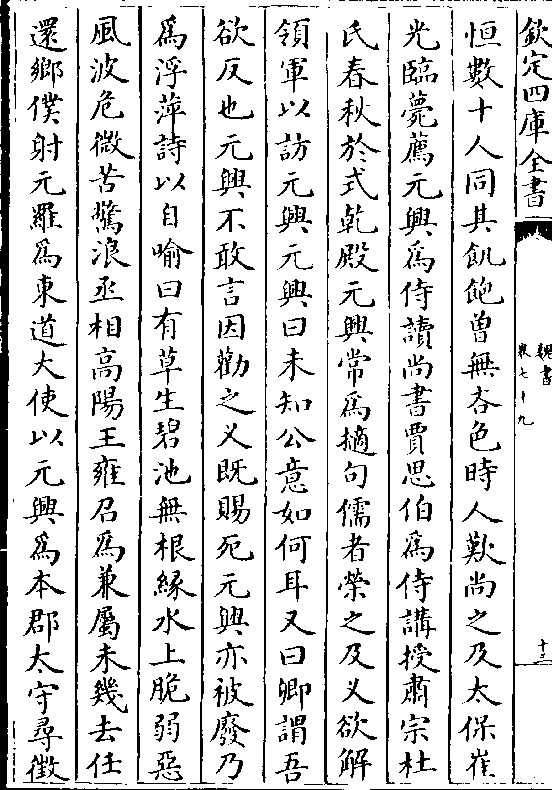 欽定四庫全書
魏書
卷七十九
十三
恒數十人同其飢飽曾無吝色時人歎尚之及太保崔
光臨薨薦元興為侍讀尚書賈思伯為侍講授肅宗杜
氏春秋於式乾殿元興常為摘句儒者榮之及乂欲解
領軍以訪元興元興曰未知公意如何耳乂曰卿謂吾
欲反也元興不敢言因勸之乂既賜死元興亦被廢乃
為浮萍詩以自喻曰有草生碧池無根緣水上脆弱惡
風波危微苦驚浪丞相高陽王雍召為兼屬未幾去任
還鄉僕射元羅為東道大使以元興為本郡太守尋徵